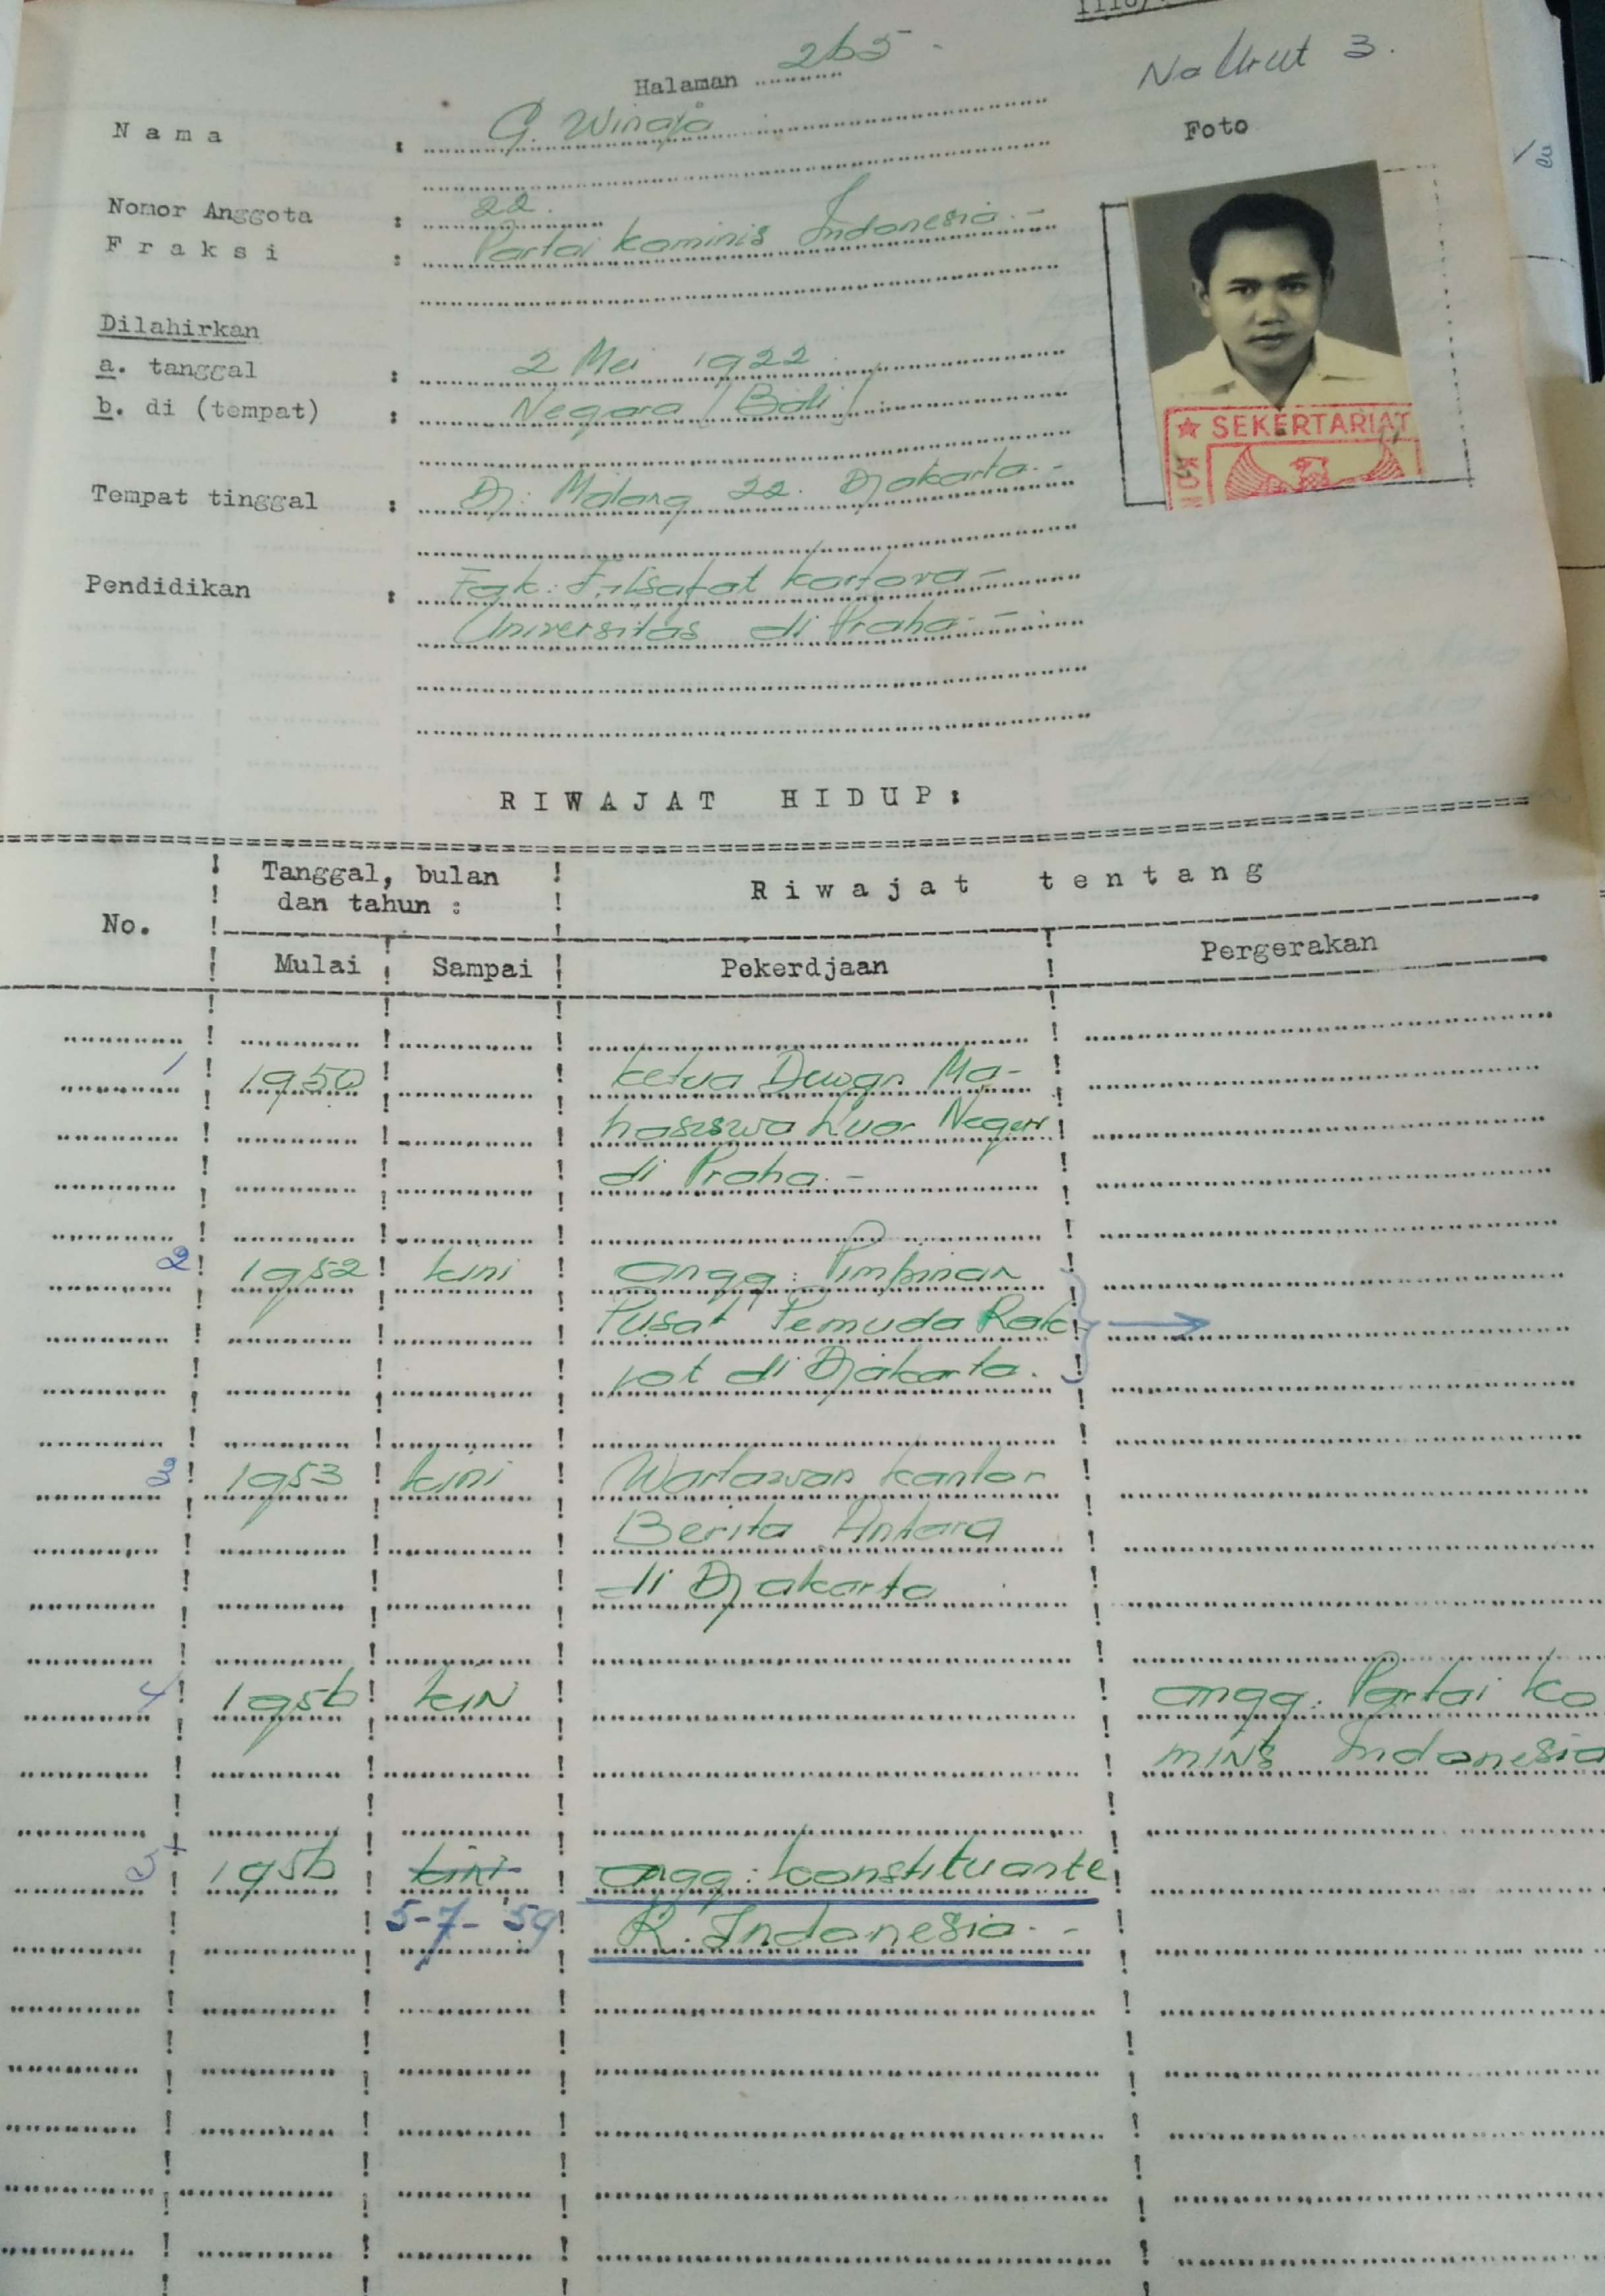 Halaman 265
No Urut 3.
Nama : G. Winaja
Foto
Nomor Anggota : 22.
Fraksi : Partai Kominis Indonesia.-
Dilahirkan
a. tanggal : 2 Mei 1922
b. di (tempat) : Negara /Bali/
Tempat tinggal : Dj: Malang 22. Djakarta.-
Pendidikan : Fak: Filsafat Kartova-
Universitas di Praha.-
★ SEKERTARIAT
RIWAJAT HIDUP:
No.
Tanggal, bulan
dan tahun :
Riwajat tentang
Mulai Sampai Pekerdjaan Pergerakan
1 1950 Ketua Dewan Ma-
hasiswa Luar Negeri
di Praha.-
2 1952 kini angg: Pimpinan
Pusat Pemuda Rak
yat di Djakarta.
3 1953 kini Wartawan kantor
Berita Antara
di Djakarta
4 1956 kini angg: Partai Ko
minis Indonesia
5 1956 kini angg: konstituante
5-7-'59 R. Indonesia.-